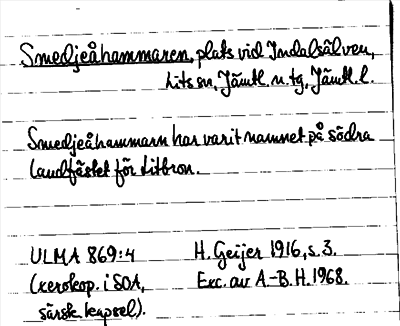 Smedjeåhammaren, plats vid Indalsälven,
Lits sn, Jämtl. n. tg, Jämtl. l.
Smedjeåhammarn har varit namnet på södra
landfästet för Litbron.
ULMA 869:4 H. Geijer 1916, s. 3.
(xerokop. i SOA, Exc. av A.-B. H. 1968.
särsk. kapsel).